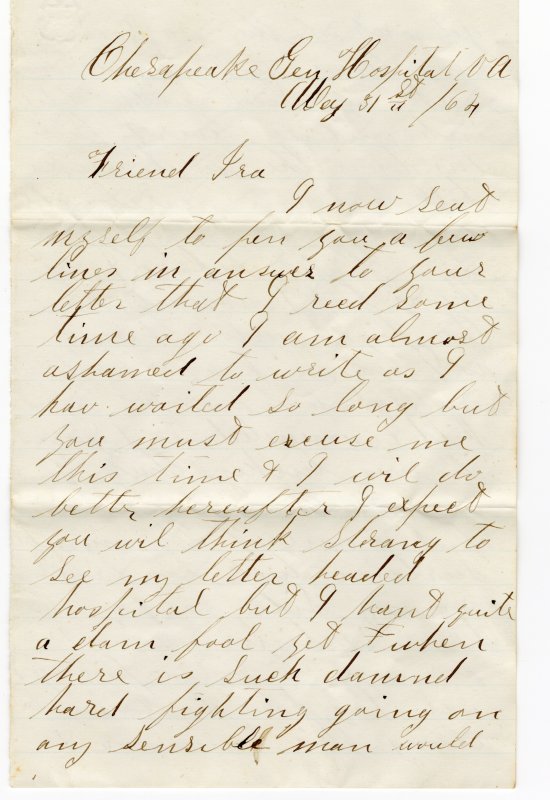 Chesapeake Gen Hospital VA
May 31st /64
Friend Ira
I now seat
myself to pen you a few
lines in answer to your
letter that I recd some
time ago I am almost
ashamed to write as I
hav waited so long but
you must excuse me
this time & I wil do
better hereafter I expect
you wil think strang to
see my letter headed
hospital but I hant quite
a dam fool yet & when
there is such damnd
hard fighting going on
any sensible man would